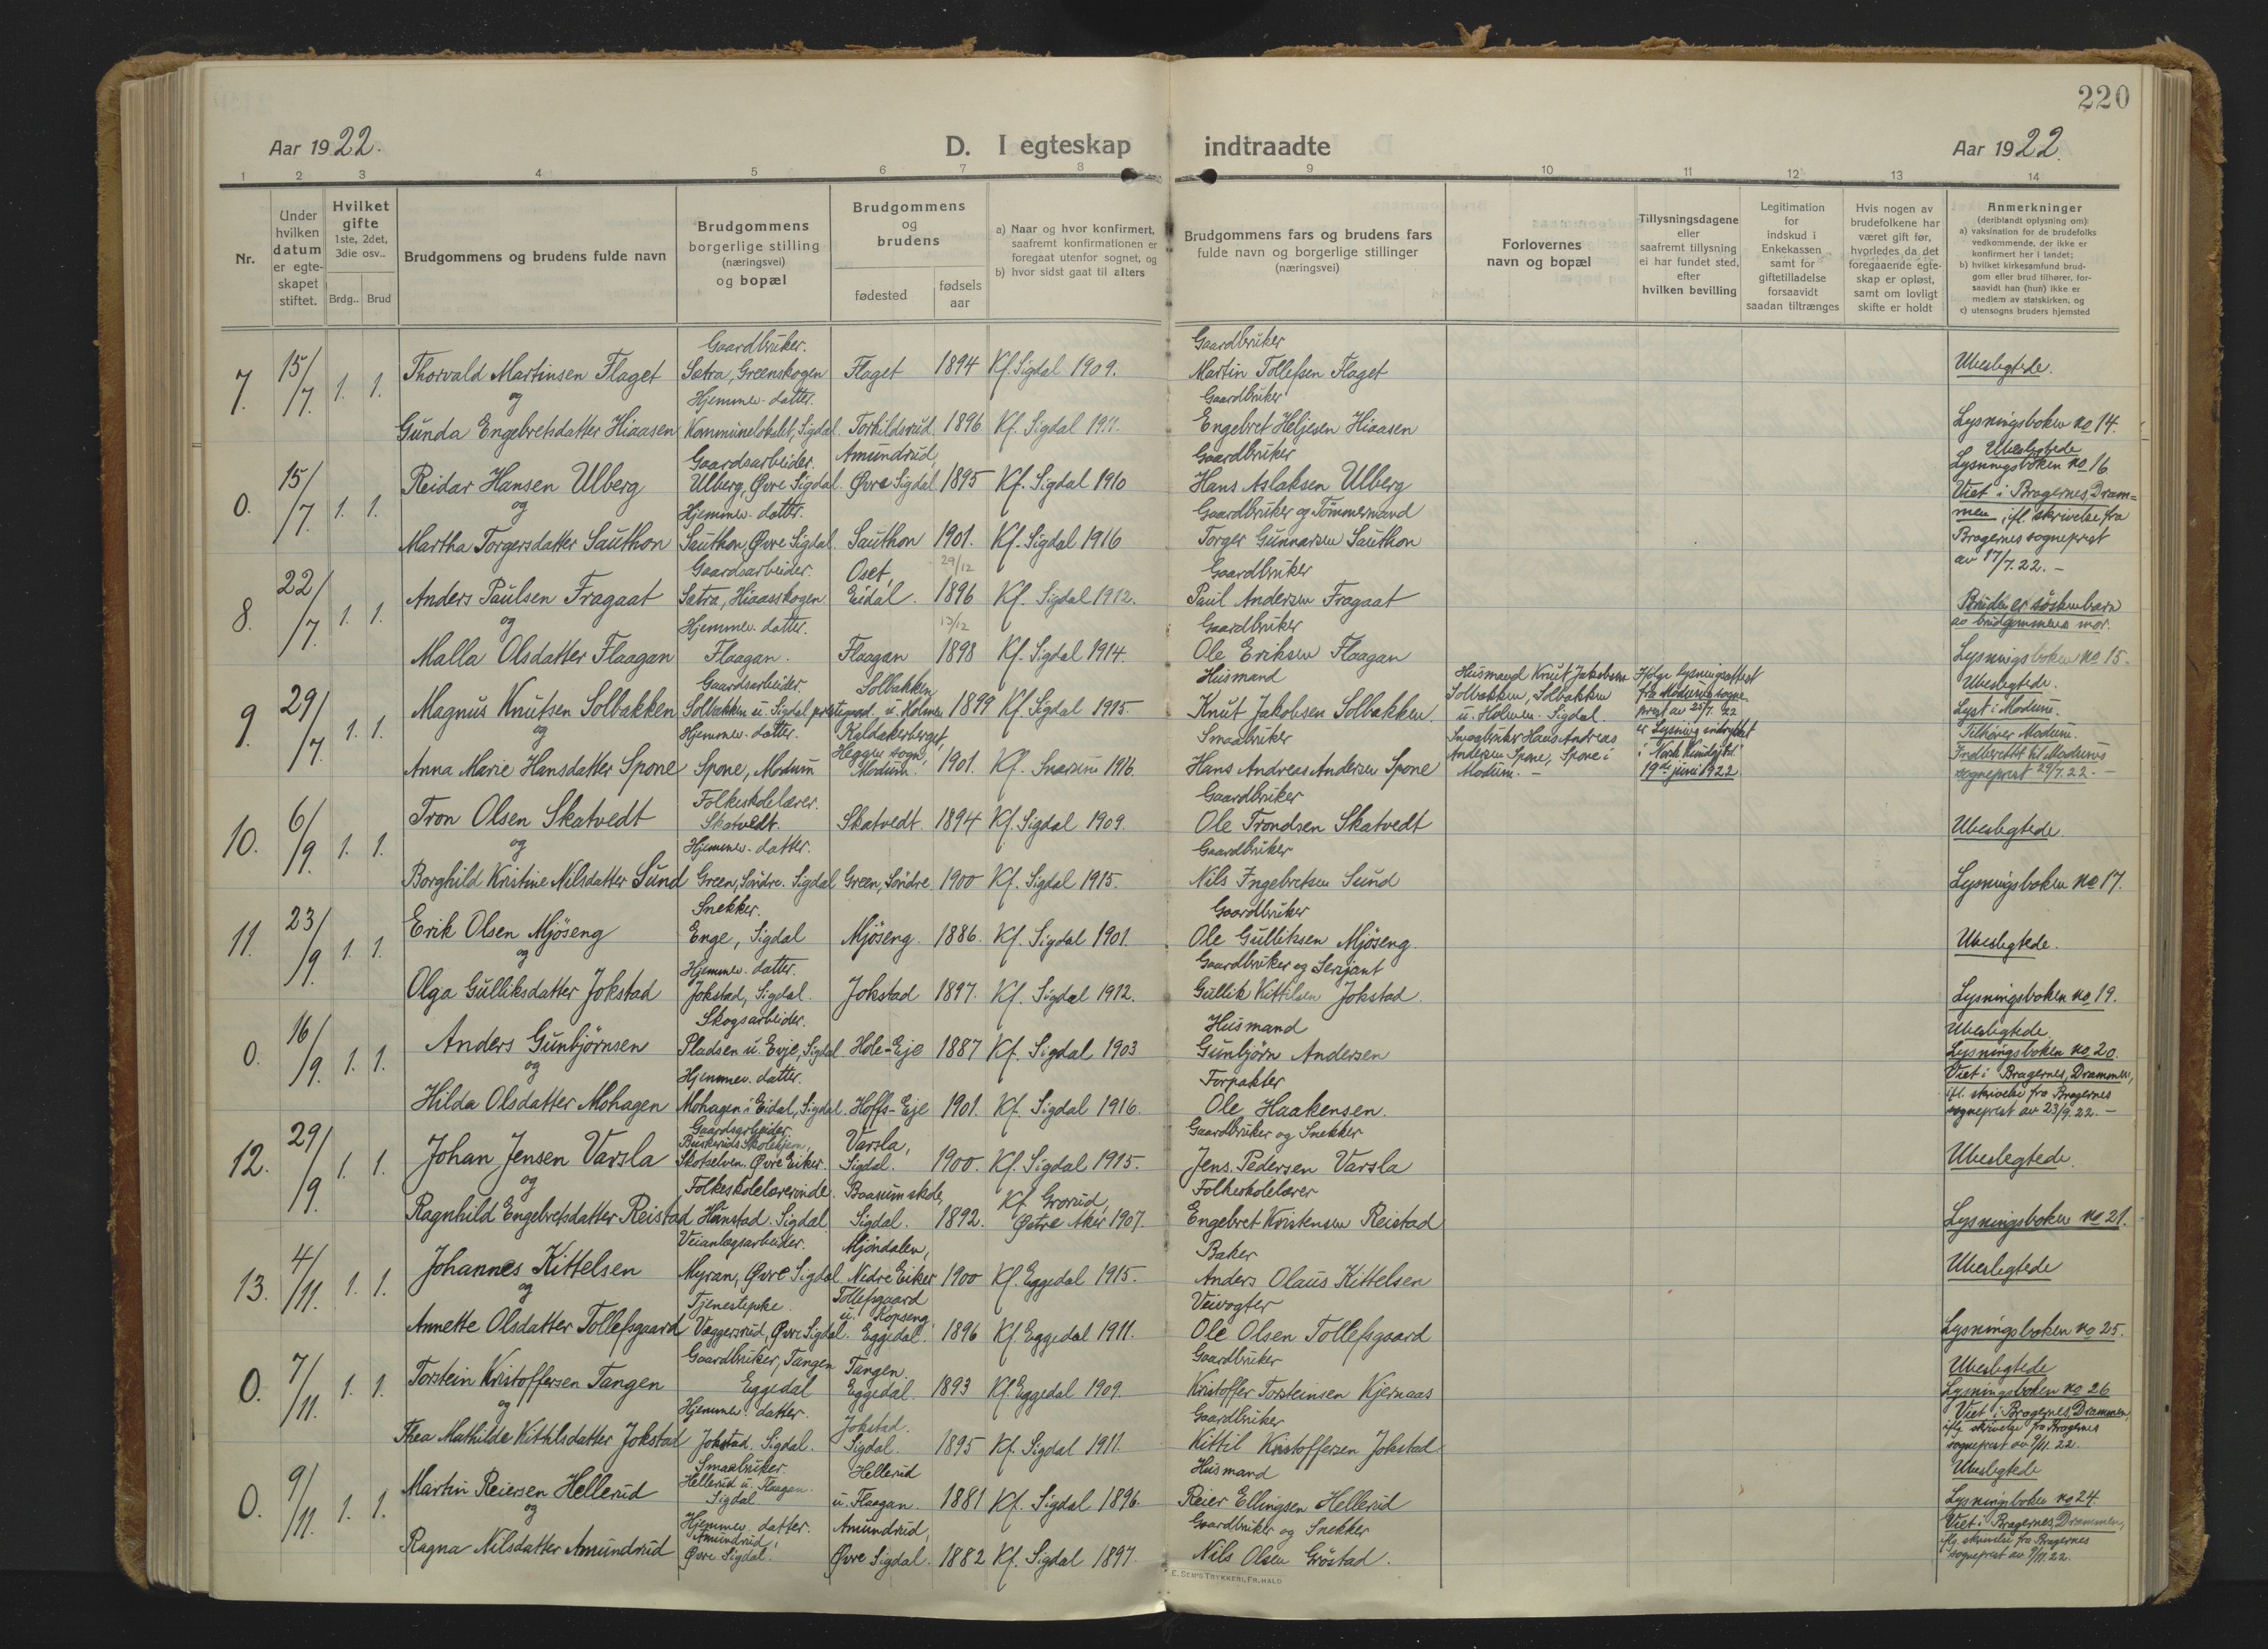 220
Aar 1922.
D. I egteskap indtraadte
Aar 1922.
1 2 3 4 5 6 7 8 9 10 11 12 13 14
Nr.
Under hvilken datum er egte-skapet stiftet.
Hvilket gifte
1ste, 2det, 3die osv..
Brdg.. Brud
Brudgommens og brudens fulde navn
Brudgommens borgerlige stilling (næringsvei) og bopæl
Brudgommens og brudens
fødested
fødsels aar
a) Naar og hvor konfirmert, saafremt konfirmationen er foregaat utenfor sognet, og
b) hvor sidst gaat til alters
Brudgommens fars og brudens fars fulde navn og borgerlige stillinger (næringsvei)
Forlovernes navn og bopæl
Tillysningsdagene eller saafremt tillysning ei har fundet sted, efter hvilken bevilling
Legitimation for indskud i Enkekassen samt for giftetilladelse forsaavidt saadan tiltrænges
Hvis nogen av brudefolkene har været gift før, hvorledes da det foregaaende egte-skap er opløst, samt om lovligt skifte er holdt
Anmerkninger (deriblandt oplysning om):
a) vaksination for de brudefolks vedkommende, der ikke er konfirmert her i landet;
b) hvilket kirkesamfund brud-gom eller brud tilhører, for-saavidt han (hun) ikke er medlem av statskirken, og
c) utensogns bruders hjemsted
Gaardbruker. Gaardbruker
7. 15/7. 1. 1. Thorvald Martinsen Flaget Sætra, Greenskogen Flaget 1894 Kf. Sigdal 1909. Martin Tollefsen Flaget Ubeslegtede.
og Hjemmev. datter. Gaardbruker
Gunda Engebretsdatter Hiaasen Kommunelokalet, Sigdal Torhildsrud 1896 Kf. Sigdal 1911. Engebret Heljesen Hiaasen Lysningsboken no 14.
Gaardsarbeider. Amundrud, Gaardbruker Ubeslegtede
0. 15/7. 1. 1. Reidar Hansen Ulberg Ulberg, Øvre Sigdal. Øvre Sigdal 1895 Kf. Sigdal 1910 Hans Aslaksen Ulberg Lysningsboken no 16
og Hjemmev. datter. Gaardbruker og Tømmermand Viet i Bragernes, Dram=
men, ifl. skrivelse fra
Martha Torgersdatter Sauthon Sauthon, Øvre Sigdal Sauthon 1901. Kf. Sigdal 1916 Torger Gunnarsen Sauthon Bragernes sogneprest
av 17/7.22. –
Gaardsarbeider. Oset, 29/12 Gaardbruker
8. 22/7. 1. 1. Anders Paulsen Fragaat Sætra, Hiaasskogen Eidal. 1896 Kf. Sigdal 1912. Paul Andersen Fragaat Bruden er søskenbarn
og Hjemmev. datter. 13/12 Gaardbruker av brudgommens mor.
Malla Olsdatter Flaagan Flaagan. Flaagan 1898 Kf. Sigdal 1914. Ole Eriksen Flaagan Lysningsboken no 15.
Gaardsarbeider. Solbakken Husmand Husmand Knut Jakobsen Ifølge lysningsattest Ubeslegtede.
9. 29/7. 1. 1. Magnus Knutsen Solbakken Solbakken u. Sigdal prestegaard u. Holmen 1899 Kf. Sigdal 1915. Knut Jakobsen Solbakken. Solbakken, Solbakken fra Modums sogne- Lyst i Modum.
u. Holmen. Sigdal. prest av 25/7. 22
og Hjemmev. datter. Kaldakerberget, Smaabruker Smaabruker Hans Andreas er Lysning indrykket Tilhører Modum.
Heggen sogn, Andersen Spone, Spone i i Norsk Kundgj.tid. Indberettet til Modums
Anna Marie Hansdatter Spone Spone, Modum Modum. 1901. Kf. Snarum 1916. Hans Andreas Andersen Spone Modum. – 19de juni 1922 sogneprest 29/7.22. –
Folkeskolelærer. Gaardbruker
10. 6/9. 1. 1. Tron Olsen Skatvedt Skatvedt. Skatvedt. 1894 Kf. Sigdal 1909. Ole Trondsen Skatvedt Ubeslegtede
og Hjemmev. datter. Gaardbruker
Borghild Kristine Nilsdatter Sund Green, Søndre. Sigdal Green, Søndre 1900 Kf. Sigdal 1915. Nils Ingebretsen Sund Lysningsboken no 17.
Snekker. Gaardbruker
11. 23/9. 1. 1. Erik Olsen Mjøseng Enge, Sigdal Mjøseng. 1886. Kf. Sigdal 1901. Ole Gulliksen Mjøseng. Ubeslegtede.
og Hjemmev. datter. Gaardbruker og Serjant
Olga Gulliksdatter Jokstad Jokstad, Sigdal. Jokstad 1897. Kf. Sigdal 1912. Gullik Kittilsen Jokstad. Lysningsboken no 19.
Skogsarbeider. Husmand Ubeslegtede
0. 16/9. 1. 1. Anders Gunbjørnsen Pladsen u. Evje, Sigdal. Hole-Eje 1887 Kf. Sigdal 1903 Gunbjørn Andersen Lysningsboken no 20.
og Hjemmev. datter. Forpakter Viet i Bragernes, Drammen,
ifl. skrivelse fra Bragernes
Hilda Olsdatter Mohagen Mohagen i Eidal, Sigdal. Hoffs-Eje 1901. Kf. Sigdal 1916. Ole Haakensen. sogneprest av 23/9. 22. –
Gaardsarbeider Gaardbruker og Snekker
Buskeruds Skolehjem, Varsla,
12. 29/9. 1. 1. Johan Jensen Varsla Skotselven. Øvre Eiker. Sigdal. 1900. Kf. Sigdal 1915. Jens Pedersen Varsla Ubeslegtede.
og Folkeskolelærerinde. Baasum skole, Kf. Grorud, Folkeskolelærer
Ragnhild Engebretsdatter Reistad Hanstad. Sigdal Sigdal. 1892. Østre Aker 1907. Engebret Kristensen Reistad Lysningsboken no 21.
Veianlægsarbeider. Mjøndalen, Baker
13. 4/11. 1. 1. Johannes Kittelsen Myran, Øvre Sigdal Nedre Eiker 1900 Kf. Eggedal 1915. Anders Olaus Kittelsen Ubeslegtede
og Tjenestepike. Tollefsgaard Veivogter
u. Kopseng,
Annette Olsdatter Tollefsgaard Væggersrud, Øvre Sigdal. Eggedal. 1896 Kf Eggedal 1911. Ole Olsen Tollefsgaard Lysningsboken no 25.
Gaardbruker, Tangen Tangen. Gaardbruker Ubeslegtede
0. 7/11. 1. 1. Torstein Kristoffersen Tangen Eggedal Eggedal. 1893 Kf. Eggedal 1909. Kristoffer Torsteinsen Kjernaas Lysningsboken no 26
og Hjemmev. datter. Jokstad. Gaardbruker Viet i Bragernes, Drammen,
iflg. skrivelse fra Bragernes
Thea Mathilde Kittilsdatter Jokstad Jokstad. Sigdal. Sigdal. 1895 Kf. Sigdal 1911. Kittil Kristoffersen Jokstad sogneprest av 9/11. 22.
Smaabruker. Hellerud Husmand Ubeslegtede
0. 9/11. 1. 1. Martin Reiersen Hellerud Hellerud u. Flaagan. Sigdal u. Flaagan. 1881 Kf. Sigdal 1896. Reier Ellingsen Hellerud Lysningsboken no 24.
og Hjemmev. datter. Amundrud, Gaardbruker og Snekker Viet i Bragernes, Drammen,
Amundrud, iflg. skrivelse fra Bragernes
Ragna Nilsdatter Amundrud Øvre Sigdal. Øvre Sigdal. 1882 Kf. Sigdal 1897. Nils Olsen Grøstad. sogneprest av 9/11. 22.
E. SEM'S TRYKKERI, FR.HALD